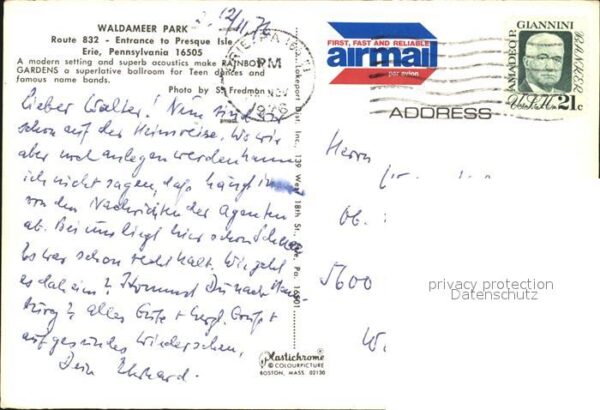 WALDAMEER PARK
Route 832 - Entrance to Presque Isle
Erie, Pennsylvania 16505
A modern setting and superb acoustics make RAINBOW
GARDENS a superlative ballroom for Teen dances and
famous name bands.
Photo by S. Fredman
12/11 76
ERIE, PA
PM
NOV
1976
FIRST, FAST AND RELIABLE
airmail
par avion
AMADEO P. GIANNINI
BANKER
USA 21c
ADDRESS
Lakeport Dist. Inc., 139 West 18th St., Erie, Pa. 16501
Lieber Walter! Nun sind wir
schon auf der Heimreise. Wo wir
aber noch anlegen werden kann
ich nicht sagen, das hängt
von den Nachrichten der Agenten
ab. Bei uns liegt hier schon Schnee
Es war schon recht kalt. Wie geht
es daheim? Kommst Du nach Ham
burg? alles Gute + hrzl. Grüße
auf gesundes Wiedersehen,
Dein Ekhard.
Herrn
5600
privacy protection
Datenschutz
Plastichrome
COLOURPICTURE
BOSTON, MASS. 02130